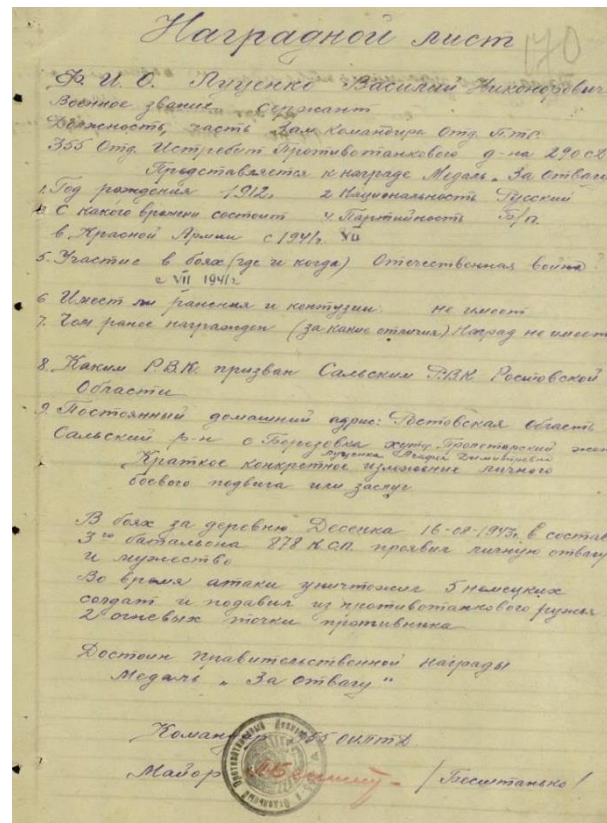 170
Наградной лист
Ф. И. О. Луценко Василий Никонорович
Военное звание сержант
Должность, часть Зам. командира отд. П.т.о.
355 Отд. Истребит Противотанкового д-на 290 сд
Представляется к награде Медаль „За Отвагу
1. Год рождения 1912. 2 Национальность Русский
3 С какого времени состоит 4. Партийность Б/п.
в Красной Армии с 1941г. VII
5. Участие в боях (где и когда) Отечественная война
с VII 1941г
6 Имеет ли ранения и контузии. не имеет
7. Чем ранее награжден (за какие отличия) Наград не имеет
8. Каким Р.В.К. призван Сальским РВК Ростовской
Области
9. Постоянный домашний адрес: Ростовская область
Сальский р-н с Березовка хутр. Пролетарский жена
Луценко Димитревна
Краткое конкретное изложение личного
боевого подвига или заслуг
В боях за деревню Десенка 16-08-1943г. в состав
3го батальона 878 КСП. проявил личную отвагу
и мужество
Во время атаки уничтожил 5 немецких
солдат и подавил из противотанкового ружья
2 огневых точки противника
Достоин правительственной награды
Медаль „За отвагу"
Командир 355 ОИПТД
Майор /Босштанько/